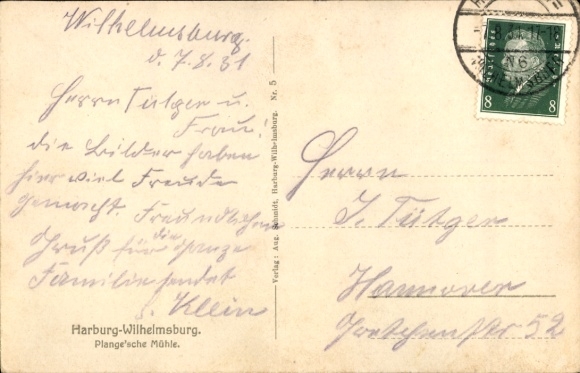 Wilhelmsburg.
d. 7.8.31
Herrn Tütger u.
Frau!
die Bilder haben
hier viel Freude
gemacht. Freundlichen
Gruß für die ganze
Familie sendet
Klein
Harburg-Wilhelmsburg.
Plange'sche Mühle.
Verlag: Aug. Schmidt, Harburg-Wilhelmsburg. Nr. 5
8 8
Herrn
J. Tütger
Hannover
Gretchenstr 52